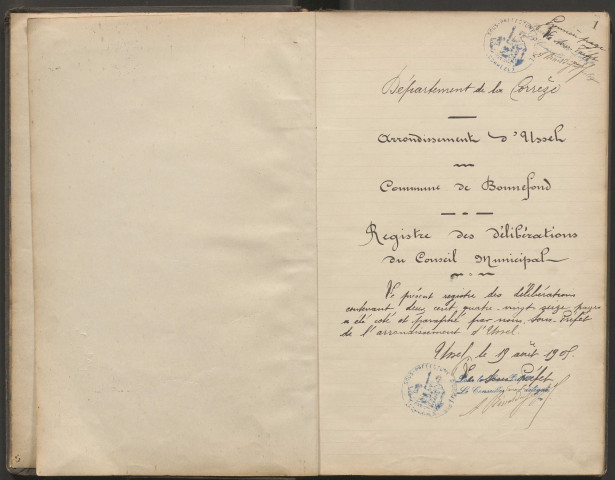 1
Première page
Département de la Corrèze
Arrondissement d'Ussel
Commune de Bonnefond
Registre des délibérations
du Conseil Municipal
Le présent registre des délibérations
contenant deux cent quatre-vingt seize pages
a été coté et paraphé par nous, Sous-Préfet
de l'arrondissement d'Ussel.
Ussel, le 19 août 1905.
Le Sous-Préfet
Le Conseiller